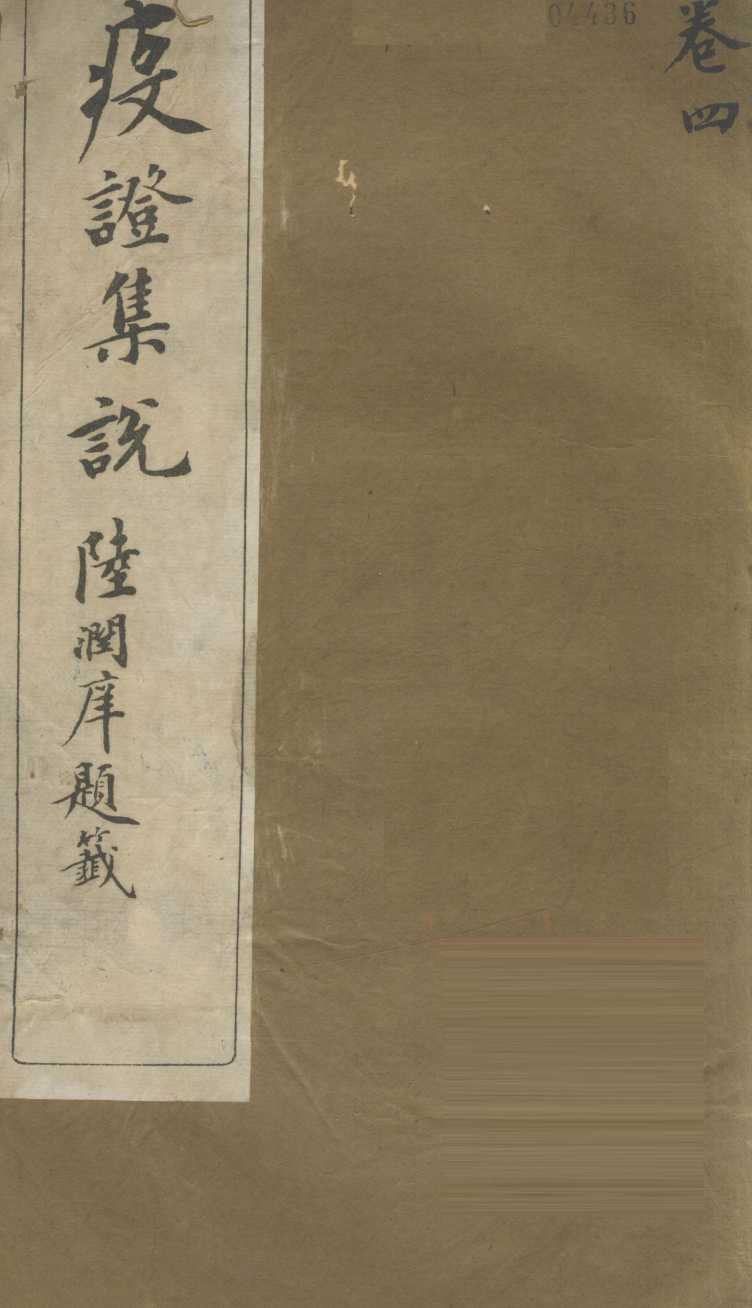 卷四
04436
疫證集說 陸潤庠題籤